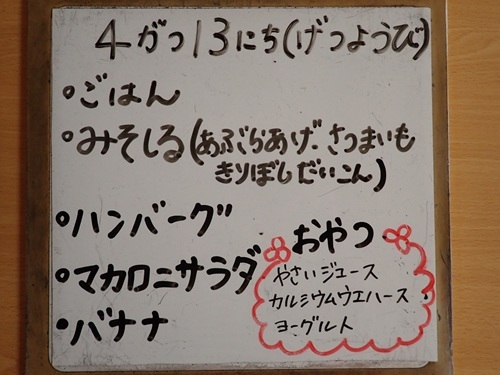 4がつ13にち(げつようび)
•ごはん
•みそしる(あぶらあげ、さつまいも
きりぼしだいこん)
•ハンバーグ
•マカロニサラダ
•バナナ
おやつ
やさいジュース
カルシウムウエハース
ヨーグルト